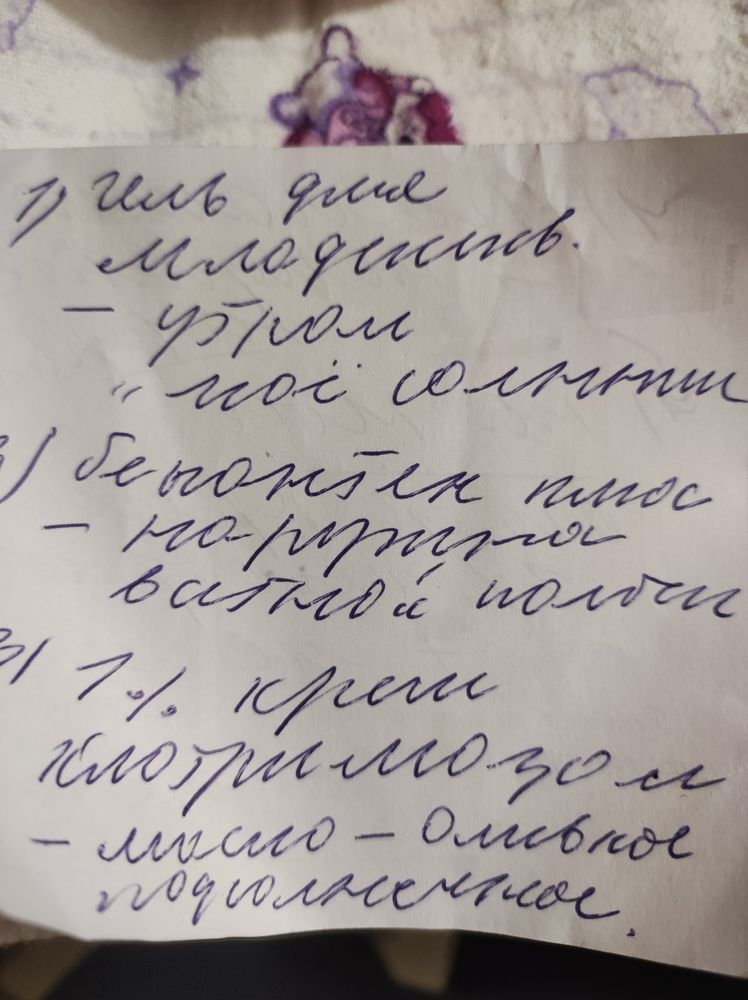 1) гель для
младенцев.
– утром
„ моё солнышк
2) бепантен плюс
– наружно
ватной палочк
3) 1% крем
клотримазол
– масло – оливкое
подсолнечное.